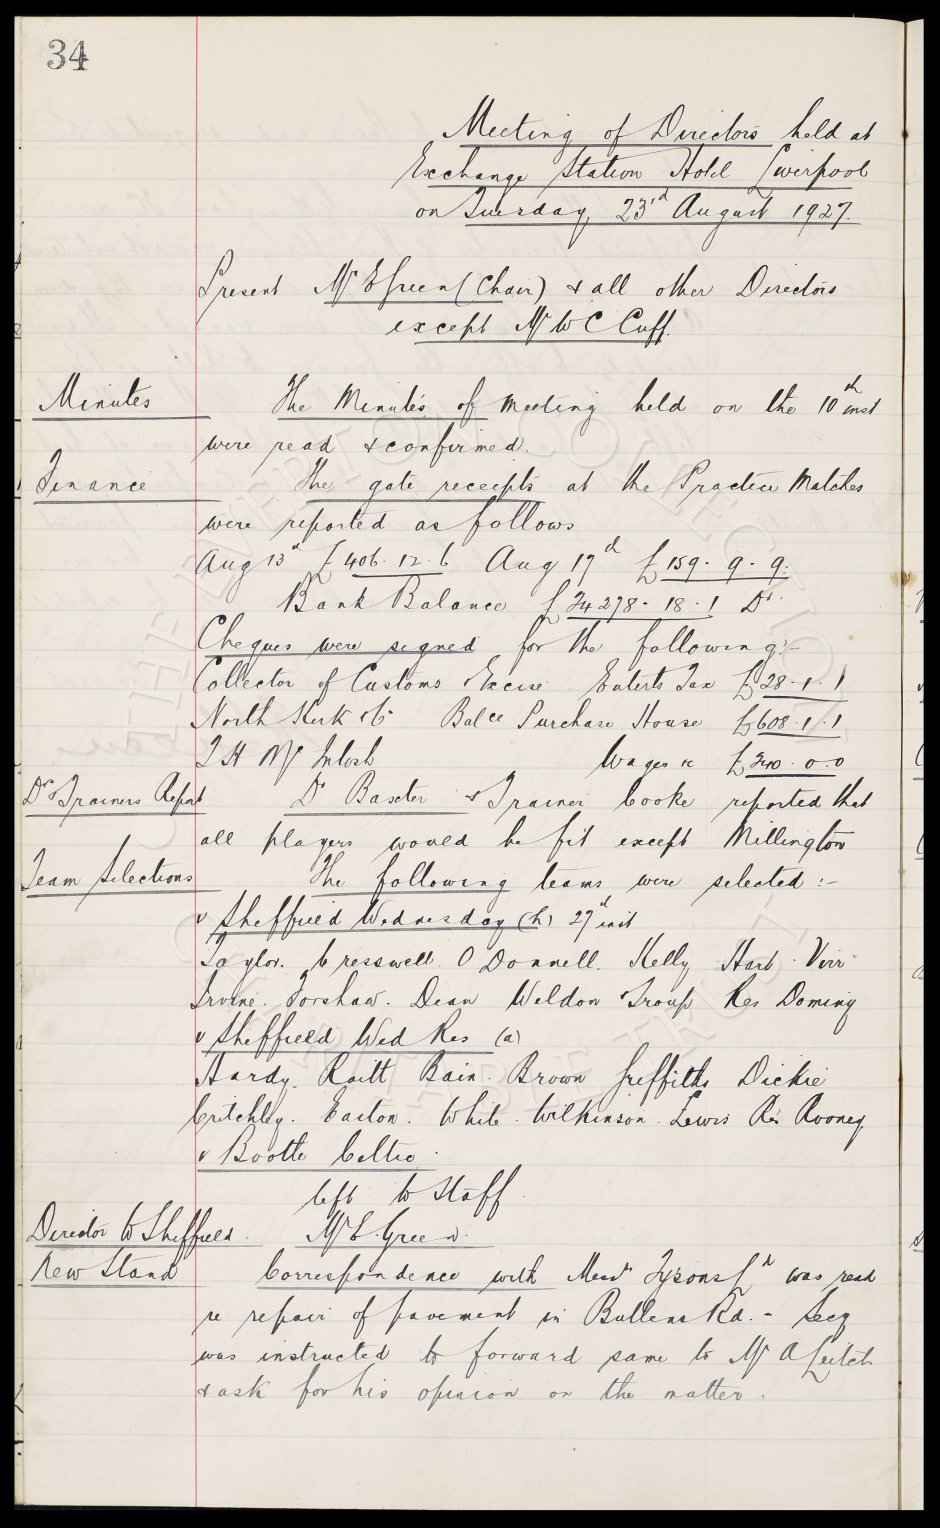 34
Meeting of Directors held at
Exchange Station Hotel Liverpool
on Tuesday 23rd August 1927.
Present Mr E Green (Chair) & all other Directors
except Mr W C Cuff.
Minutes The Minutes of Meeting held on the 10th inst
were read & confirmed.
Finance The gate receipts at the Practice Matches
were reported as follows
Aug 13th £406.12.6 Aug 17th £159.9.9.
Bank Balance £24278.18.1 Dr.
Cheques were signed for the following:-
Collector of Customs & Excise Enterts Tax £28.1.1
North Kirk & Co Balce Purchase House £608.1.1
T H McIntosh Wages &c £340.0.0
Dr & Trainers Report Dr Baxter & Trainer Cooke reported that
all players would be fit except Millington
Team Selections The following teams were selected:-
v Sheffield Wednesday (h) 27th inst
Taylor. Cresswell. O'Donnell. Kelly Hart. Virr
Irvine. Forshaw. Dean Weldon Troup Res Dominy
v Sheffield Wed Res (a)
Hardy. Raitt Bain. Brown Griffiths Dickie
Critchley. Easton. White. Wilkinson. Lewis Res Rooney
v Bootle Celtic.
left to Staff.
Director to Sheffield. Mr E. Green.
New Stand Correspondence with Messrs Tysons Ld was read
re repair of pavement in Bullens Rd. - Secy
was instructed to forward same to Mr A Leitch
& ask for his opinion on the matter.